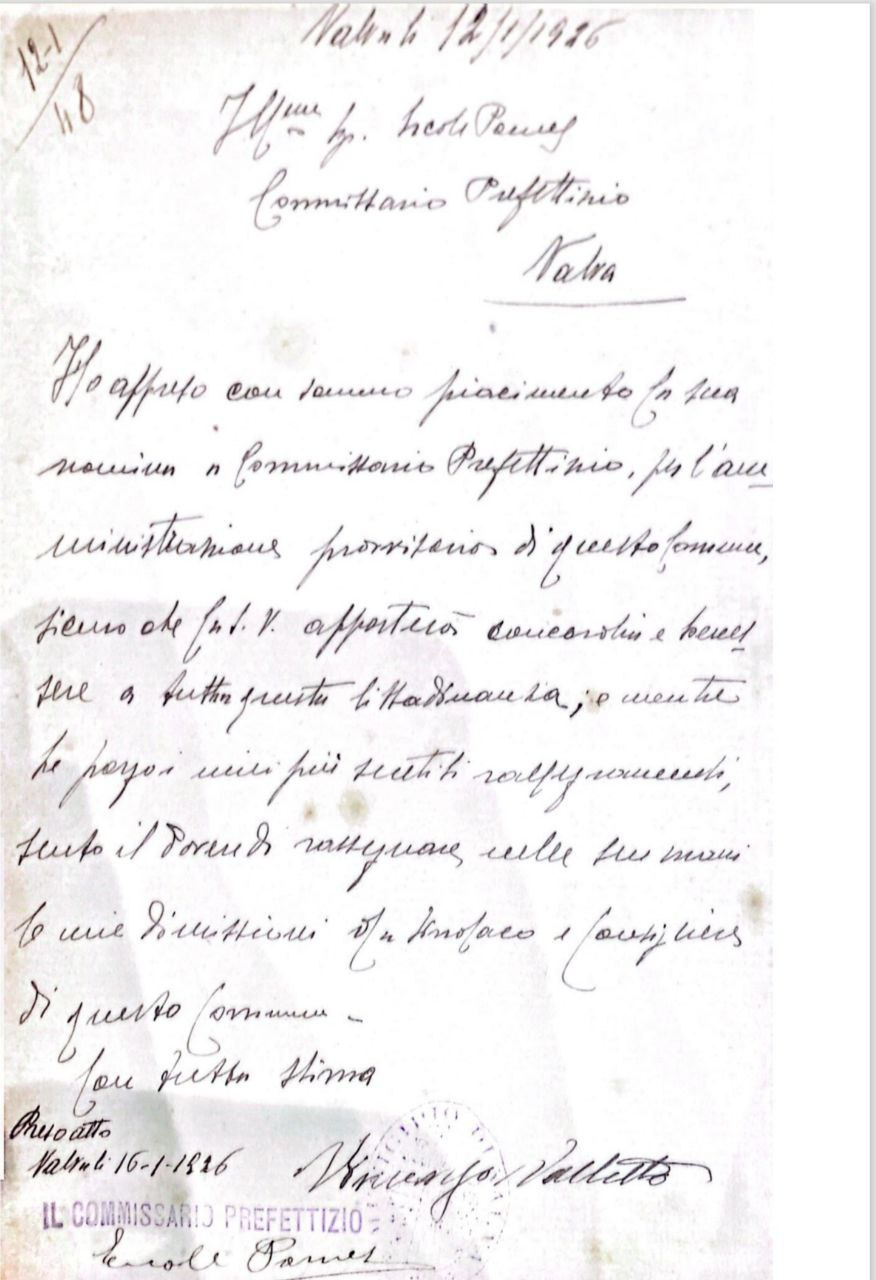 12-1
48
Valva li 12/1/1926
Ill.mo Sig. Ercole Pomes
Commissario Prefettizio
Valva
Ho appreso con sommo piacimento la sua
nomina a Commissario Prefettizio, per l'am
ministrazione provvisoria di questo Comune,
sicuro che la S. V. apporterà concordia e benes
sere a tutta questa Cittadinanza; e mentre
Le porgo i miei più sentiti rallegramenti,
sento il dovere di rassegnare nelle sue mani
le mie dimissioni da Sindaco e Consigliere
di questo Comune -
Con tutta stima
Preso atto
Valva li 16-1-1926
Vincenzo Valletta
IL COMMISSARIO PREFETTIZIO
Ercole Pomes